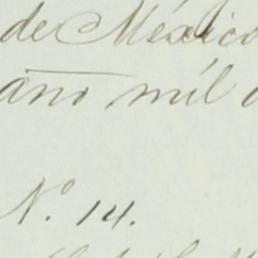 de México
año mil
N.º 14.